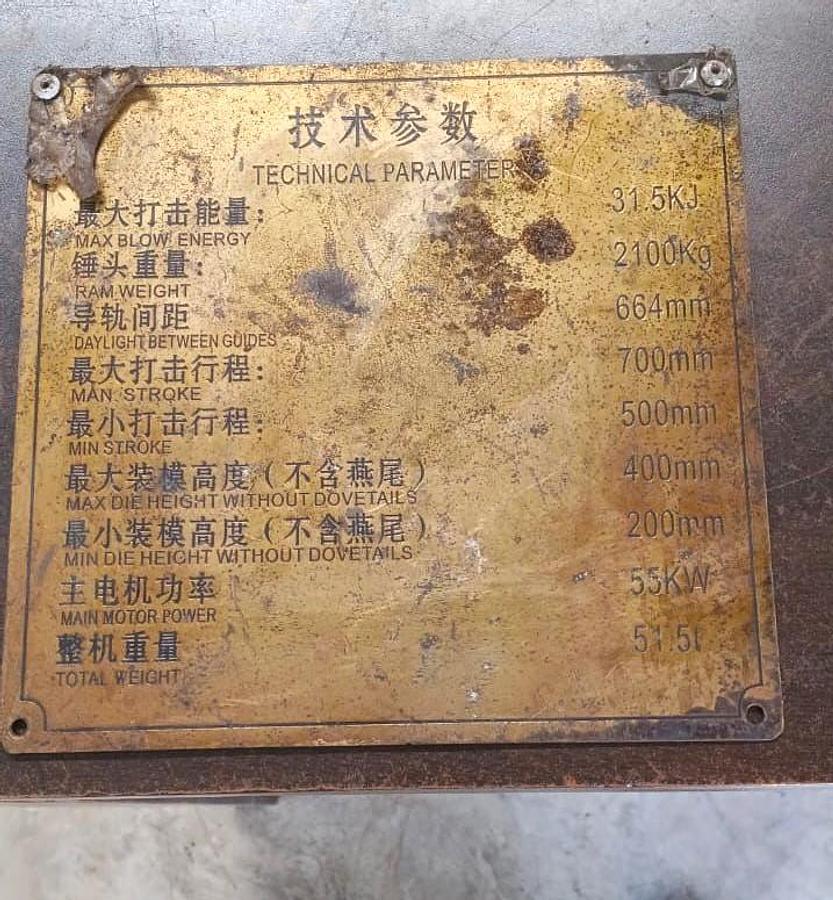 技术参数
TECHNICAL PARAMETERS
最大打击能量: 31.5KJ
MAX BLOW ENERGY
锤头重量: 2100Kg
RAM WEIGHT
导轨间距 664mm
DAYLIGHT BETWEEN GUIDES
最大打击行程: 700mm
MAN. STROKE
最小打击行程: 500mm
MIN STROKE
最大装模高度(不含燕尾) 400mm
MAX DIE HEIGHT WITHOUT DOVETAILS
最小装模高度(不含燕尾) 200mm
MIN DIE HEICHT WITHOUT DOVETAILS
主电机功率 55KW
MAIN MOTOR POWER
整机重量 51.5t
TOTAL WEIGHT